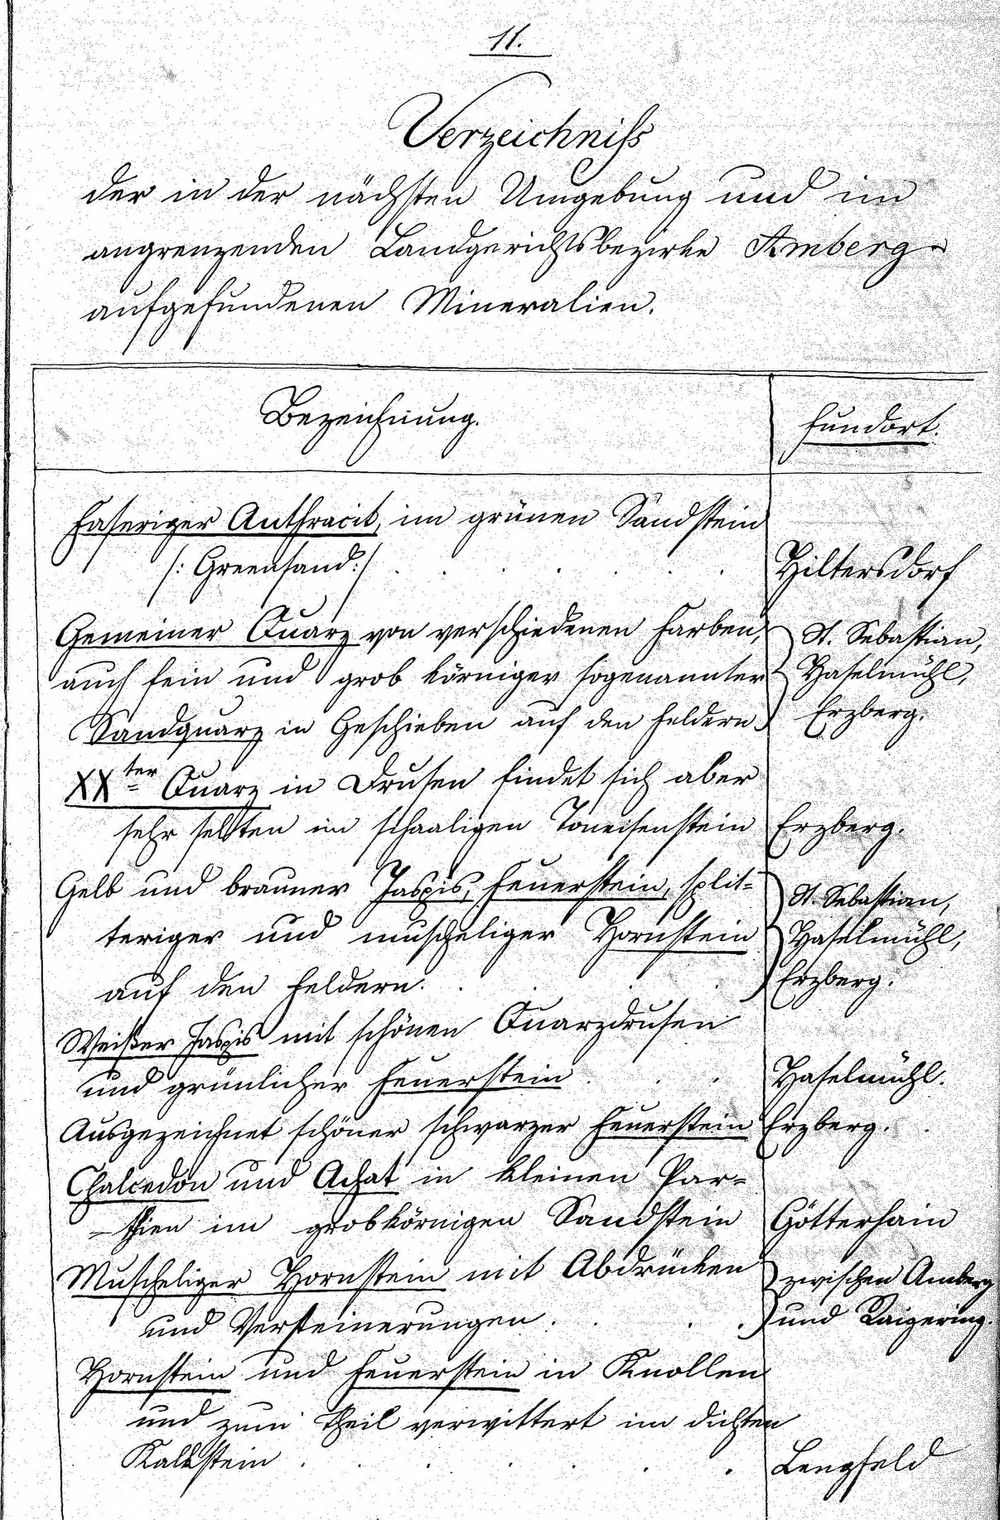 11.
Verzeichniss
der in der nächsten Umgebung und im
angrenzenden Landgerichtsbezirke Amberg
aufgefundenen Mineralien.
Bezeichnung.
Fundort.
Faseriger Anthracit, im grünen Sandstein
/: Greensand :/ . . . . . . Hiltersdorf
Gemeiner Quarz von verschiedenen Farben, St. Sebastian,
auch fein und grob körniger sogenannter Haselmühl,
Sandquarz in Geschieben auf den Feldern. Erzberg.
XXter Quarz in Drusen findet sich aber
sehr selten im schaaligen Toneisenstein Erzberg.
Gelb und brauner Jaspis, Feuerstein, split= St. Sebastian,
teriger und muscheliger Hornstein Haselmühl,
auf den Feldern. . . . Erzberg.
Weißer Jaspis mit schönen Quarzdrusen
und grünlicher Feuerstein . . . Haselmühl.
Ausgezeichnet schöner schwarzer Feuerstein Erzberg.
Chalcedon und Achat in kleinen Par=
=thien im grobkörnigen Sandstein Götterhain
Muscheliger Hornstein mit Abdrücken zwischen Amberg
und Versteinerungen . . . . und Raigering.
Hornstein und Feuerstein in Knollen
und zum Theil verwittert im dichten
Kalkstein . . . . . . Lengfeld